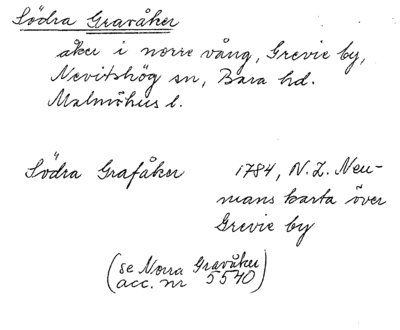 Södra Gravåker
åker i norre vång, Grevie by,
Nevitshög sn, Bara hd.
Malmöhus l.
Södra Grafåker 1784, N. L. Neu-
mans karta över
Grevie by
(se Norra Gravåker
acc. nr 5570)